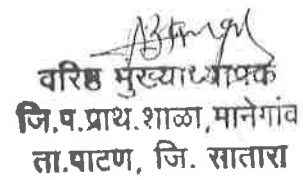 वरिष्ठ मुख्याध्यापक
जि.प.प्राथ.शाळा,मानेगांव
ता.पाटण, जि. सातारा